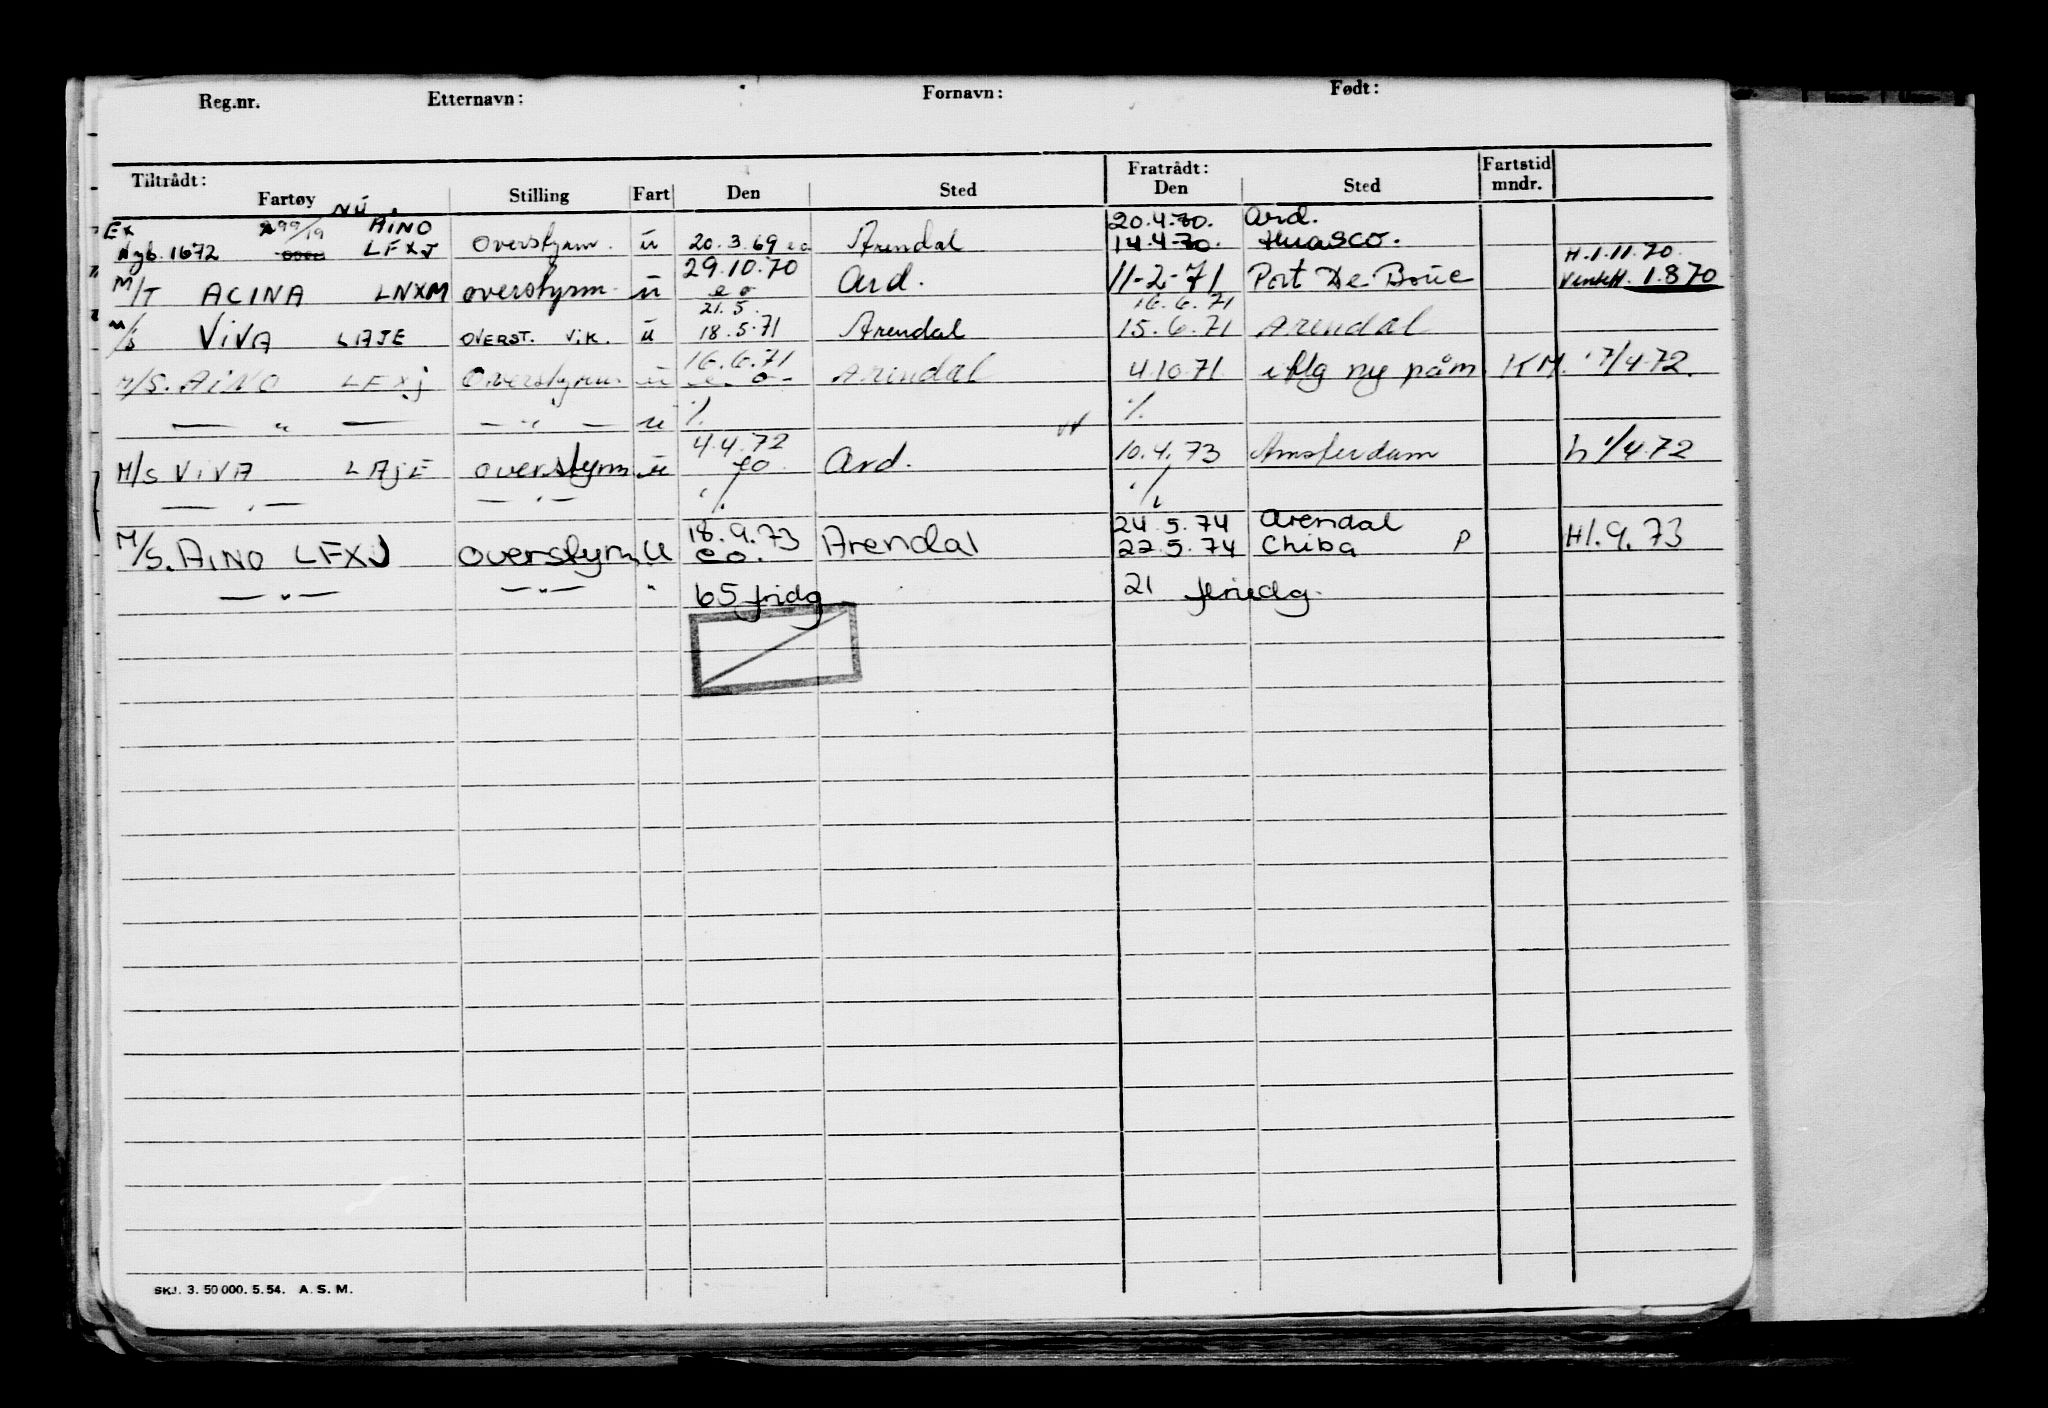 Reg.nr. Etternavn: Fornavn: Født:
Tiltrådt: Fratrådt: Fartstid
Fartøy Stilling Fart Den Sted Den Sted mndr.
Ex 299/19 NÚ AiNO 20.4.70. Ard.
Nyb. 1672 LFXJ Overstyrm. u 20.3.69 eo Arendal 14.4.70. Huasco.
29.10.70 H.1.11.70.
M/T ACINA LNXM overstyrm. u eo Ard. 11-2-71 Port De Boúc Ventet. 1.8 70
21.5. 16.6.71
M/S ViVA LAJE OVERST. ViK. u 18.5.71 Arendal 15.6.71 Arendal
16.6.71
M/S. AiNO LFXj Overstyrm. u e.o- Arendal 4.10.71. iflg ny påm. KM. 1/4-72.
— " — — " — u ./. ./.
4.4.72
M/S ViVA LAjE overstyrm u eo. Ard. 10.4.73 Amsterdam h 1/4.72
— " — — " — ./. ./.
18.9.73 24.5.74 Arendal
M/S. AiNO LFXJ Overstyrm. U eo. Arendal 22.5.74 Chiba P H1.9.73
— " — — " — " 65 fridg 21 feriedg.
SKJ. 3. 50 000. 5. 54. A. S. M.